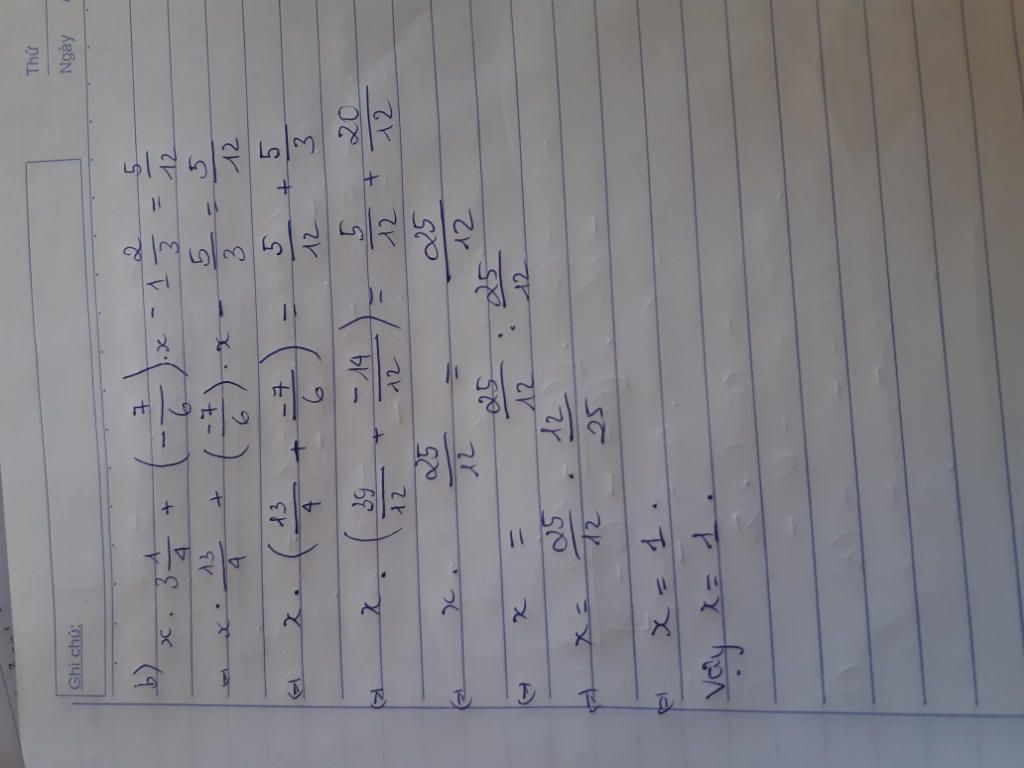 Thứ
Ngày
Ghi chú:
b) x . 3 1/4 + (- 7/6) . x - 1 2/3 = 5/12
(=) x . 13/4 + (-7/6) . x - 5/3 = 5/12
(=) x . (13/4 + -7/6) = 5/12 + 5/3
(=) x . (39/12 + -14/12) = 5/12 + 20/12
(=) x . 25/12 = 25/12
(=) x = 25/12 : 25/12
(=) x = 25/12 . 12/25
(=) x = 1 .
Vậy x = 1 .